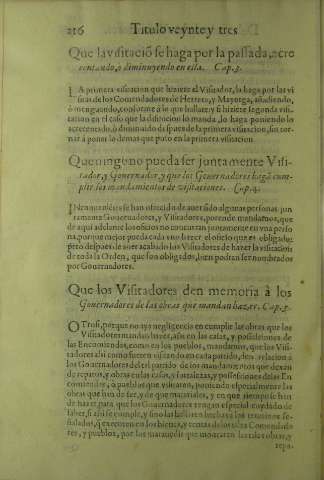 216 Titulo veynte y tres
Que la visitació se haga por la passada, acre
centando, o diminuyendo en ella. Cap. 3.
LA primera visitacion que hiziere el Visitador, la haga por las vi
sitas de los Comendadores de Herrera, y Mayorga, añadiendo,
o menguando, conforme a lo que hallare, y si hiziere segunda visi-
tacion en el caso que la difinicion lo manda, lo haga poniendo lo
acrecentado, o diminuido despues de la primera visitacion, sin tor-
nar a poner lo demas que puso en la primera visitacion.
Que ninguno pueda ser juntamente Visi-
tador, y Governador, y que los Governadores hagã cum-
plir los mandamientos de visitaciones. Cap. 4.
IN convenientes se han ofrecido de aver sido algunas personas jun
tamente Governadores, y Visitadores, por ende mandamos, que
de aqui adelante los oficios no concurran juntamente en una perso
na, porque mejor pueda cada uno hazer el oficio que es obligado:
pero despues de aver acabado los Visitadores de hazer la visitacion
de toda la Orden, que son obligados, bien podran ser nombrados
por Governadores.
Que los Visitadores den memoria à los
Governadores de las obras que mandan hazer. Cap. 5.
OTrosi, porque no aya negligencia en cumplir las obras que los
Visitadores mandaren hazer, assi en las casas, y possessiones de
las Encomiendas, como en los pueblos, mandamos, que los Visi-
tadores assi como fueren visitando en cada partido, den relacion a
los Governadores del tal partido de los mandamientos que dexan
de reparos, y obras en las casas, y fortalezas, y possessiones de las En
comiendas, o pueblos que visitaren, poniendo especialmente las
obras que han de ser, y de que materiales, y en que tiempo se han
de hazer para que los Governadores tengan especial cuydado de
saber, si assi se cumple, y sino las hizieren hechas a los terminos se-
ñalados, q̃ executen en los bienes, y rentas de los tales Comendado
res, y pueblos, por los maravedis que montaren las tales obras, y
repa-